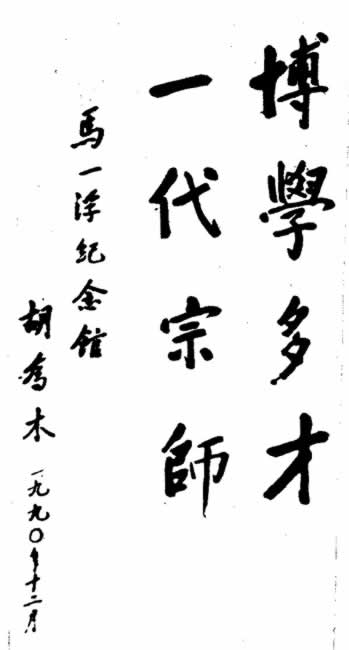 博學多才
一代宗師
馬一浮紀念館
胡喬木
一九九〇年十二月